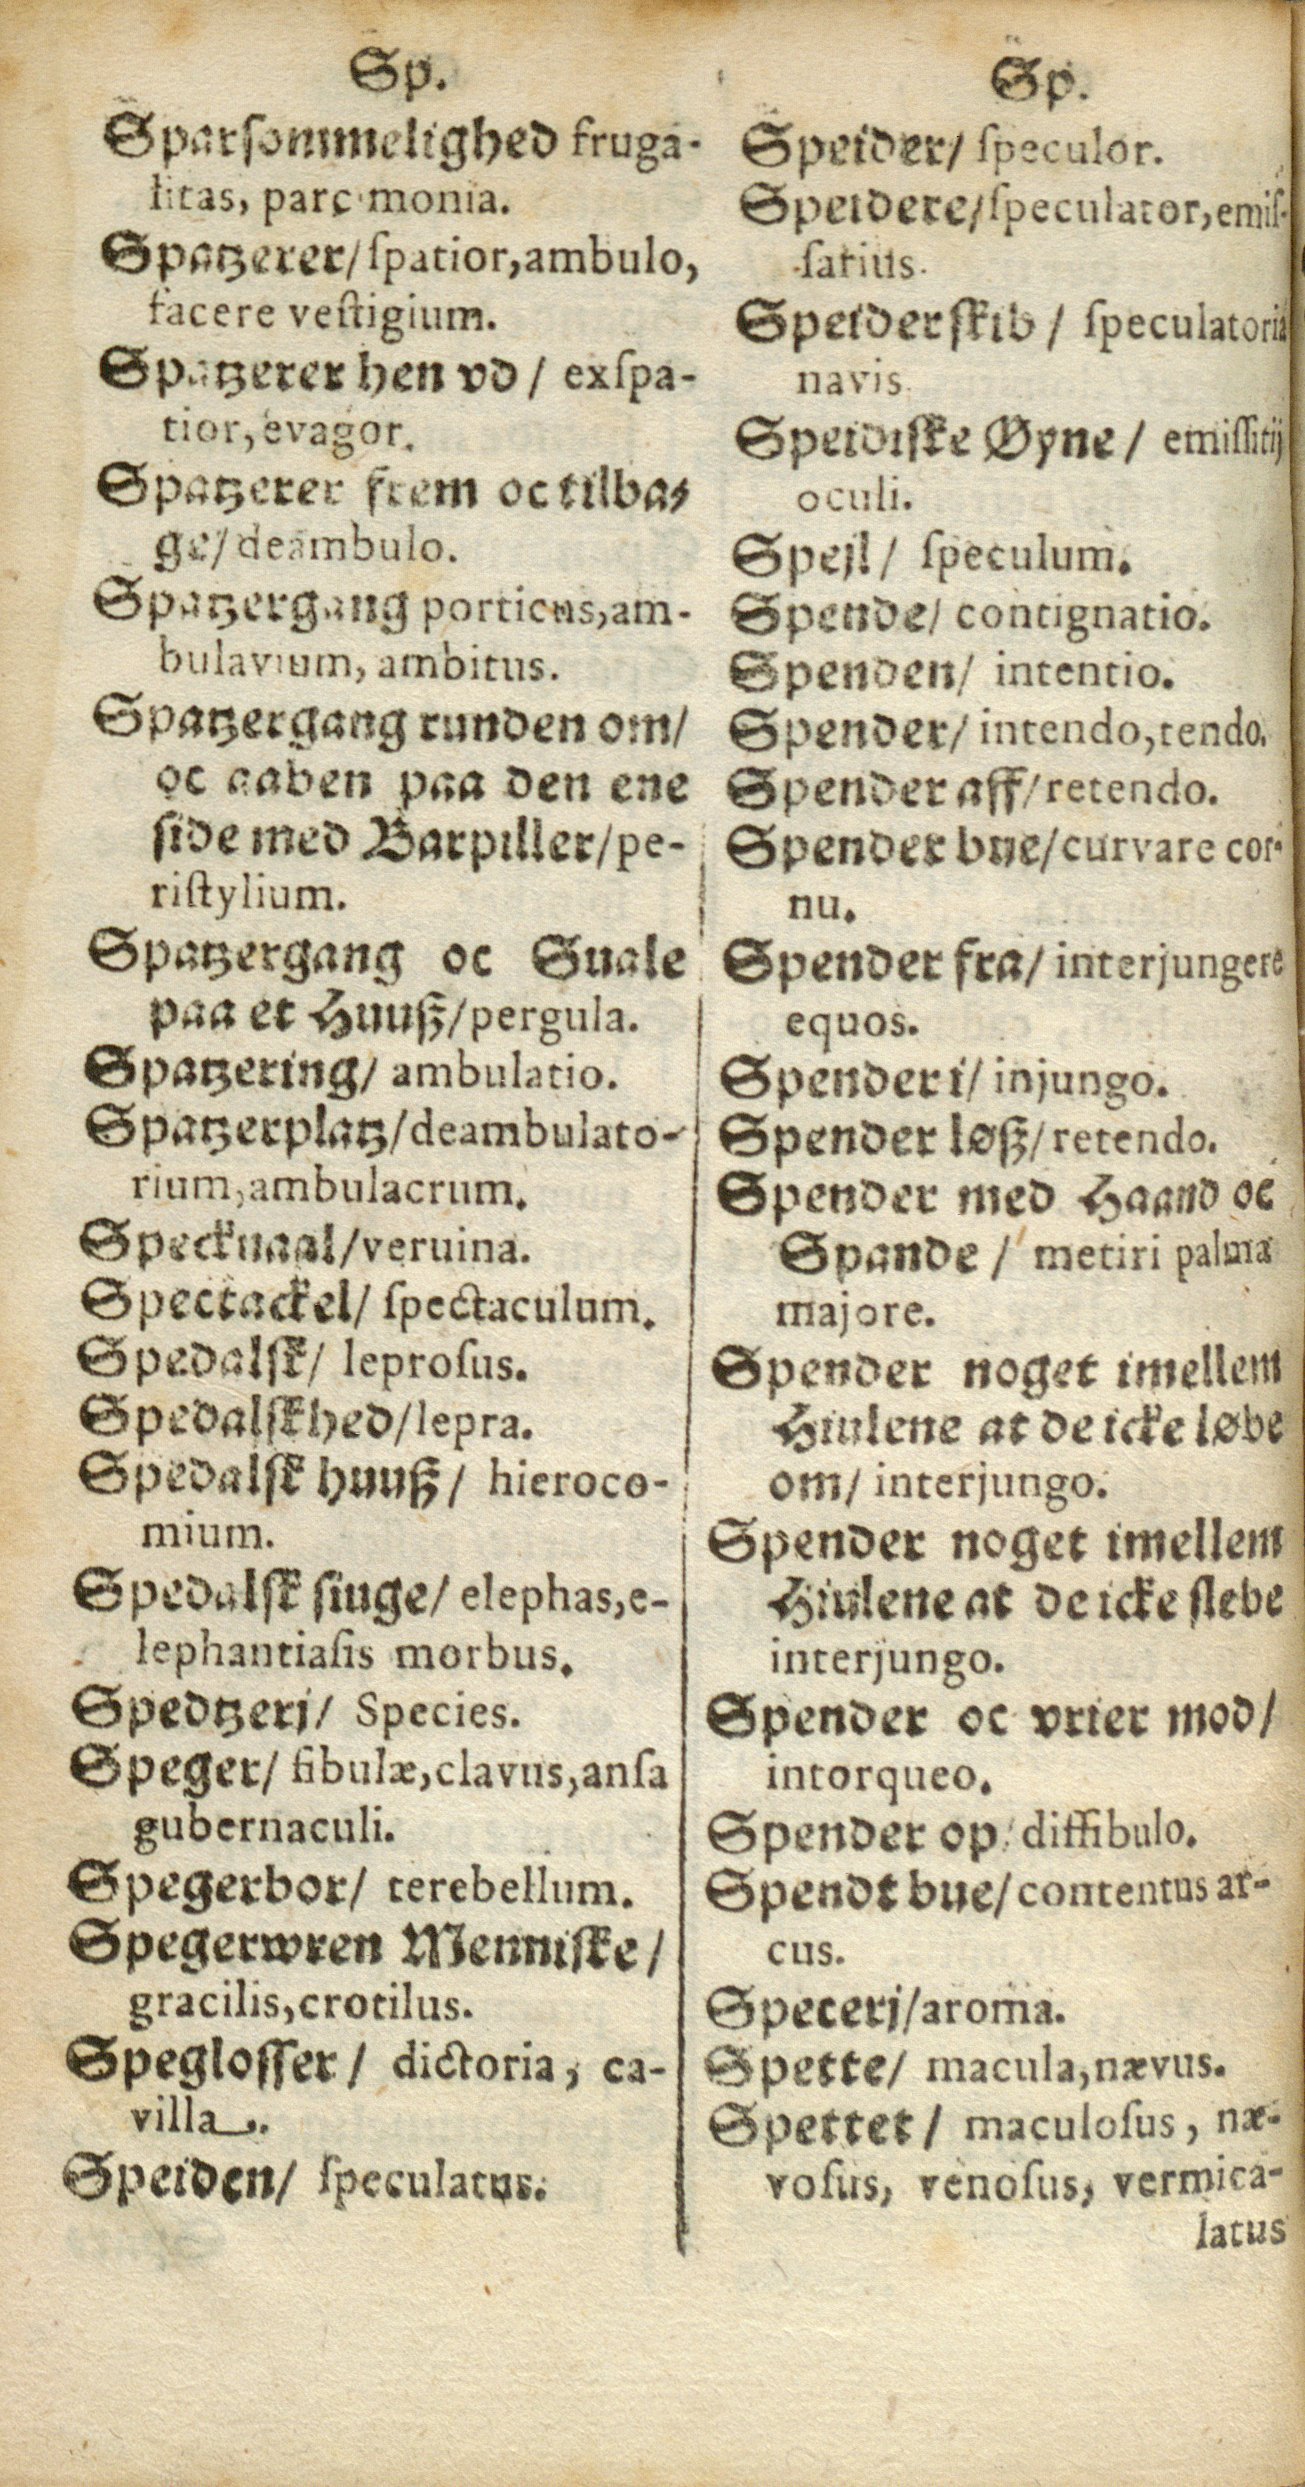 Sp.
Sparſommelighed fruga-
litas, parcimonia.
Spatzerer/ ſpatior, ambulo,
facere veſtigium.
Spatzerer hen vd/ exſpa-
tior, evagor.
Spatzerer frem oc tilba-
ge/ deambulo.
Spatzergang porticus, am-
bulavium, ambitus.
Spatzergang runden om/
oc aaben paa den ene
ſide med Barpiller/ pe-
riſtylium.
Spatzergang oc Suale
paa et Huuß/ pergula.
Spatzering/ ambulatio.
Spatzerplatz/ deambulato-
rium, ambulacrum.
Specknaal/ veruina.
Spectackel/ ſpectaculum.
Spedalſk/ leproſus.
Spedalſkhed/ lepra.
Spedalſk huuß/ hieroco-
mium.
Spedalſk ſiuge/ elephas, e-
lephantiaſis morbus.
Spedtzerj/ Species.
Speger/ fibulæ, clavus, anſa
gubernaculi.
Spegerbor/ terebellum.
Spegerwren Menniſke/
gracilis, crotilus.
Spegloſſer/ dictoria, ca-
villa.
Speiden/ ſpeculatus.
Sp.
Speider/ ſpeculor.
Speidere/ ſpeculator, emiſ-
ſarius.
Speiderſkib/ ſpeculatoria
navis.
Speidiſke Øyne/ emiſſitij
oculi.
Spejl/ ſpeculum.
Spende/ contignatio.
Spenden/ intentio.
Spender/ intendo, tendo.
Spender aff/ retendo.
Spender bue/ curvare cor-
nu.
Spender fra/ interjungere
equos.
Spender i/ injungo.
Spender løß/ retendo.
Spender med Haand oc
Spande/ metiri palma
majore.
Spender noget imellem
Hiulene at de icke løbe
om/ interjungo.
Spender noget imellem
Hiulene at de icke ſlebe
interjungo.
Spender oc vrier mod/
intorqueo.
Spender op/ diffibulo.
Spendt bue/ contentus ar-
cus.
Specerj/ aroma.
Spette/ macula, nævus.
Spettet/ maculoſus, næ-
voſus, venoſus, vermica-
latus